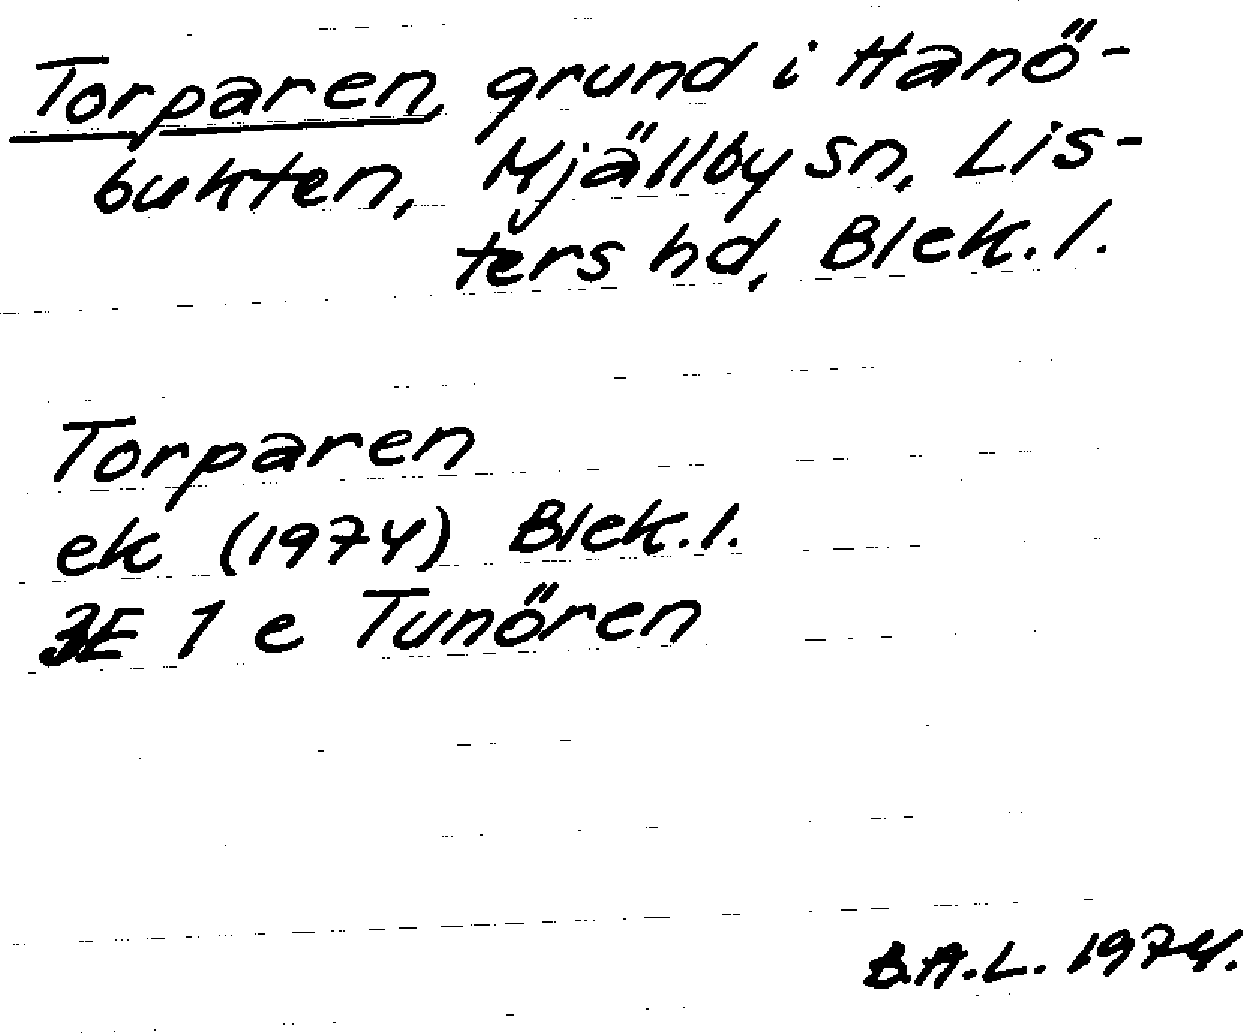 Torparen, grund i Hanö-
bukten, Mjällby sn, Lis-
ters hd, Blek. l.
Torparen
ek (1974) Blek. l.
3E 1 e Tunören
B.A.L. 1974.